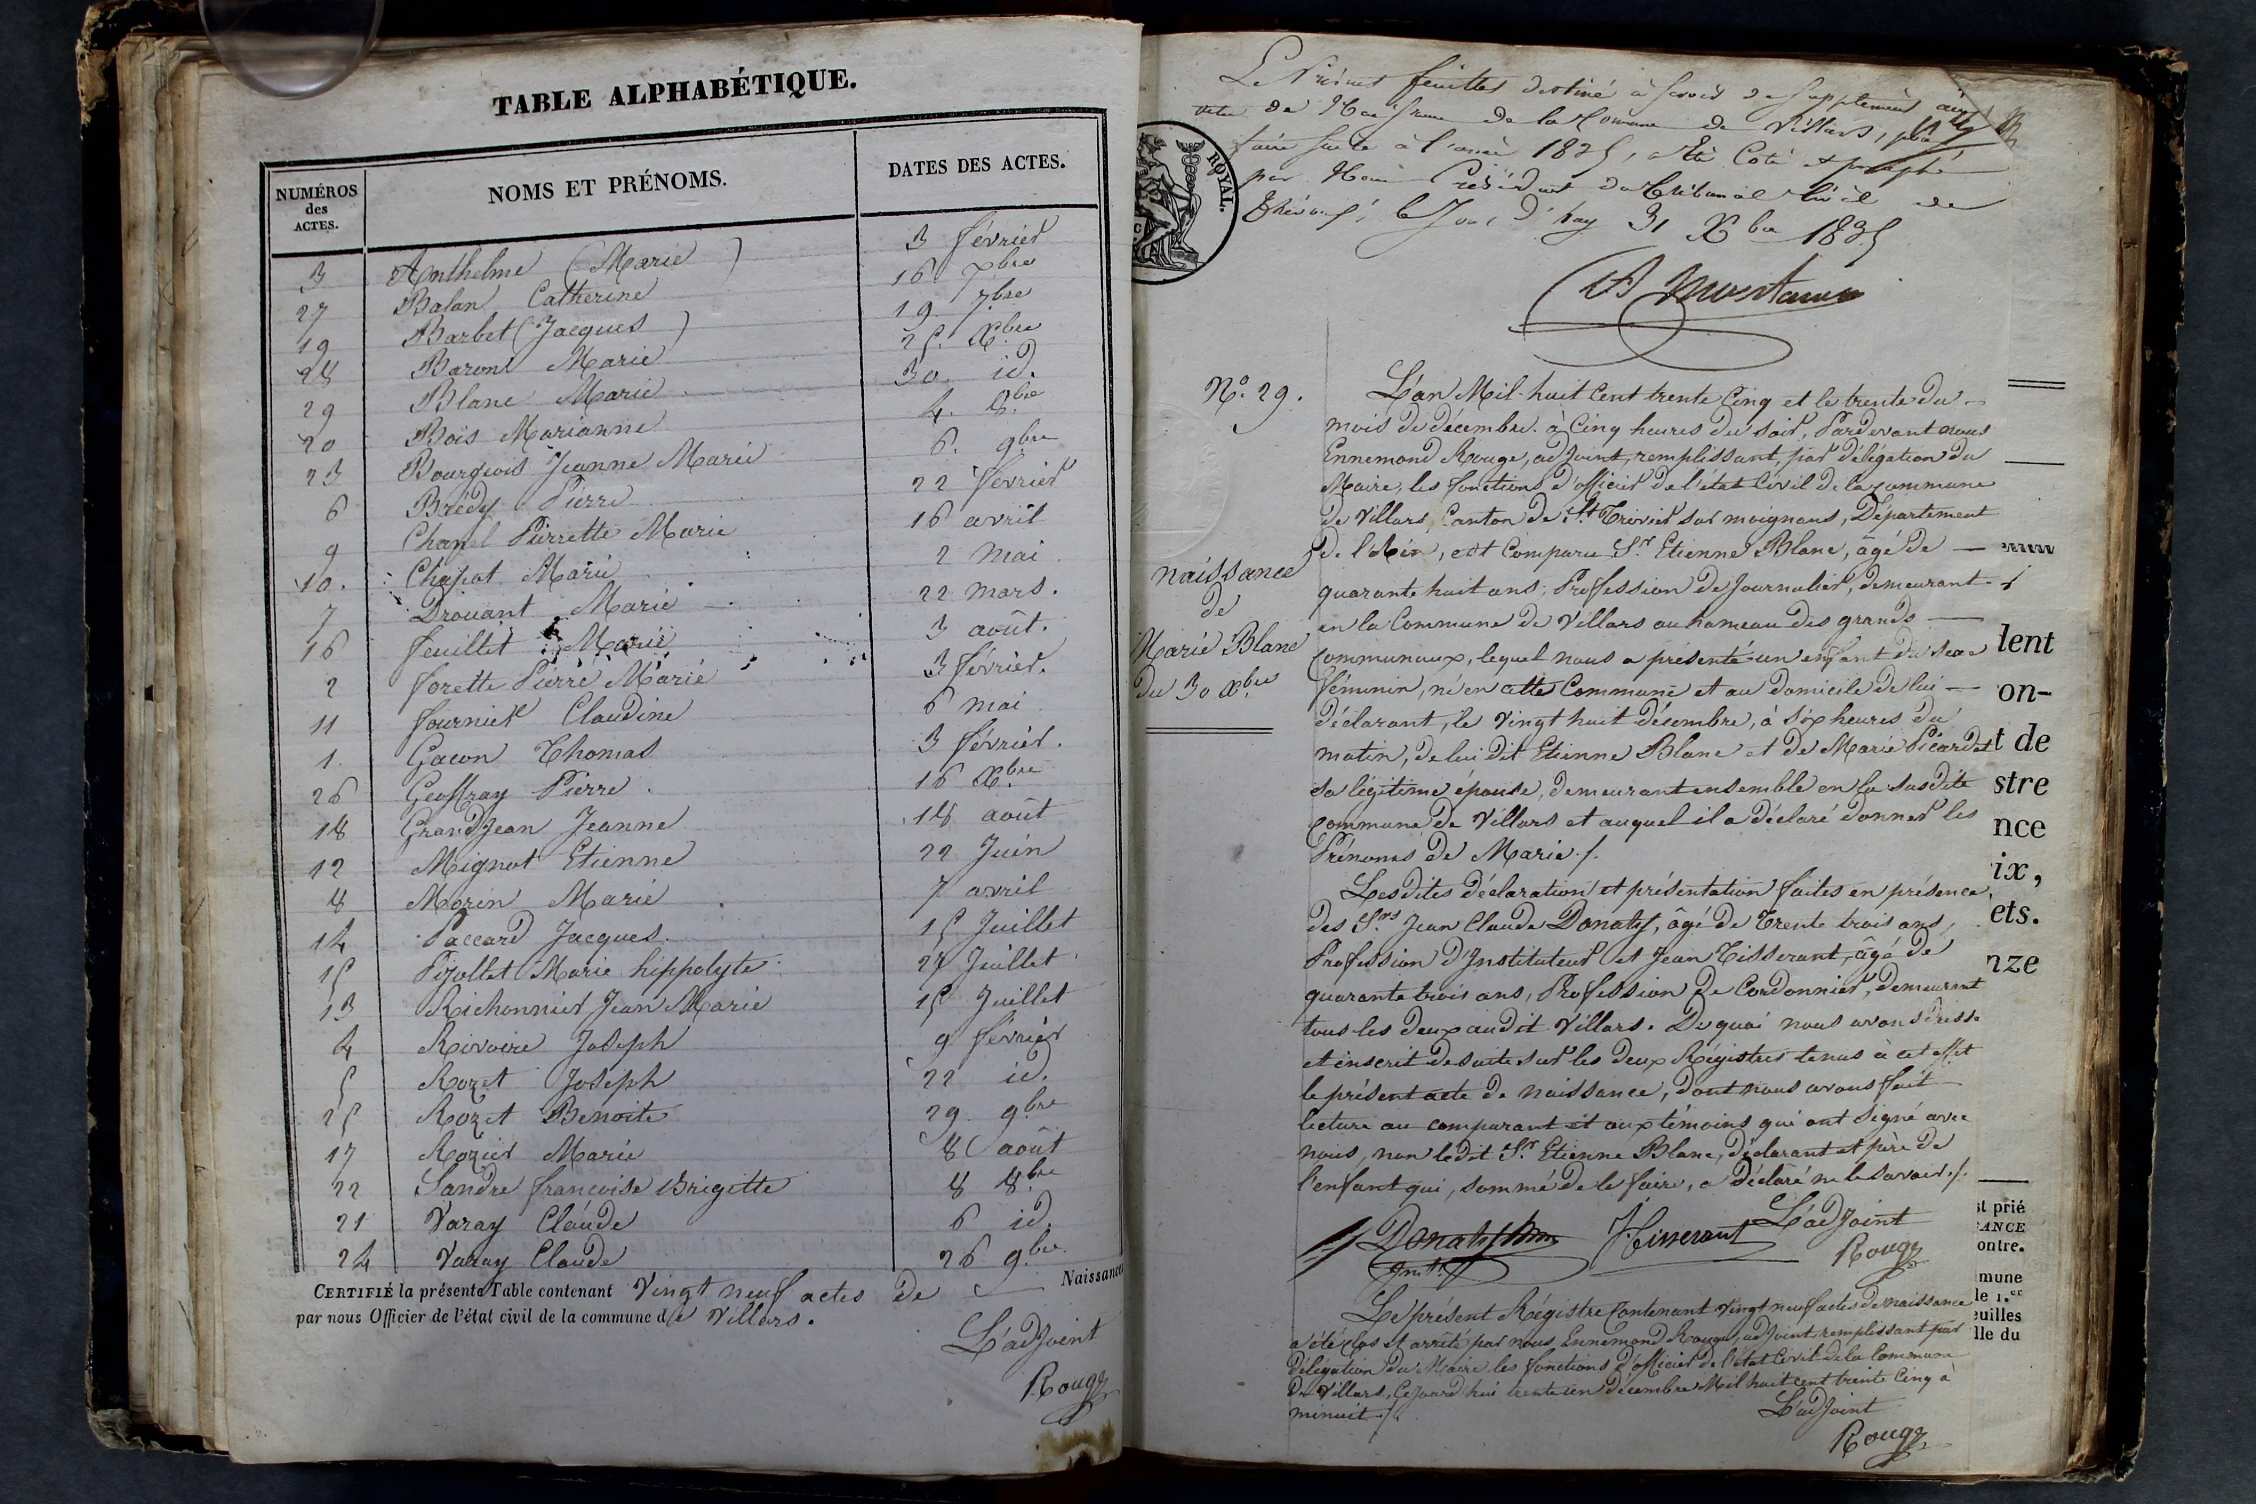 TABLE ALPHABÉTIQUE.
NUMÉROS des ACTES. NOMS ET PRÉNOMS. DATES DES ACTES.
3 Anthelme (Marie) 3 février
27 Balan Catherine 16 xbre
19 Barbet (Jacques) 19 7bre
28 Baron Marie 25 Xbre
29 Blanc Marie 30 id.
20 Bois Marianne 4. 8bre
23 Bourgeois Jeanne Marie 6. 9bre
6 Brédy Pierre 22 février
9 Chanel Pierrette Marie 16 avril
10. Chapot Marie 2 mai
7 Drouant Marie 22 mars.
16 feuillet Marie 3 août.
2 forette Pierre Marie 3 février.
11 fournier Claudine 6 mai
1. Gacon Thomas 3 février.
26 Geoffray Pierre 16 Xbre
18 GrandJean Jeanne 18 août
12 Mignot Etienne 22 Juin
8 Morin Marie 7 avril
14 Paccard Jacques 15 Juillet
15 Pizollet Marie hippolyte 27 Juillet
13 Richonnier Jean Marie 15 Juillet
4 Rivoire Joseph 9 février
5 Rozet Joseph 22 id.
25 Rozet Benoite 29 9bre
17 Rozier Marie 8 août
22 Sandre françoise Brigitte 8 8bre
21 Varay Claude 6 id.
24 Varay Claude 26 9bre
CERTIFIÉ la présente Table contenant Vingt neuf actes de Naissance
par nous Officier de l'état civil de la commune de Villars.
L'adjoint
Rouge
Le Présent feuillet destiné à servir de supplément aux
de Naissance de la Commune de Villars, pour
faire suite à l'année 1835, a été Coté et paraphé
par Nous Président du tribunal Civil de
Trévoux, le Jour d'huy 31 Xbre 1835
ROYAL.
No. 29.
naissance
de
Marie Blanc
du 30 Xbre
L'an Mil huit Cent trente Cinq et le trente du
mois de décembre à Cinq heures du soir, Pardevant nous
Ennemond Rouge, adjoint, remplissant, par délégation du
Maire, les fonctions d'officier de l'état Civil de la commune
de Villars, Canton de St. Trivier sur moignans, Département
de l'Ain, est Comparu Sr. Etienne Blanc, âgé de
quarante huit ans, Profession de Journalier, demeurant
en la Commune de Villars au hameau des grands
communaux, lequel nous a présenté un enfant du sexe
féminin, né en cette Commune et au domicile de lui
déclarant, le vingt huit décembre, à six heures du
matin, de lui dit Etienne Blanc et de Marie Picardet
sa légitime épouse, demeurant ensemble en la susdite
commune de Villars et auquel il a déclaré donner les
Prénoms de Marie ./.
Lesdites déclaration et présentation faites en présence
des Srs. Jean Claude Donat, âgé de Trente trois ans,
Profession d'Instituteur et Jean Tisserant, âgé de
quarante trois ans, Profession de Cordonnier, demeurant
tous les deux audit Villars. De quoi nous avons dressé
et inscrit de suite sur les deux Régistres tenus à cet effet
le présent acte de naissance, dont nous avons fait
lecture au comparant et aux témoins qui ont signé avec
nous, non ledit Sr. Etienne Blanc, déclarant et père de
l'enfant qui, sommé de le faire, a déclaré ne le savoir ./.
Donat Tisserant L'adjoint
Rouge
Le présent Régistre Contenant Vingt neuf actes de naissance
a été clos et arrêté par nous Ennemond Rouge, adjoint, remplissant par
délégation du Maire les fonctions d'officier de l'état Civil de la Commune
de Villars, Cejourd'hui trente un décembre Mil huit cent trente Cinq à
minuit ./.
L'adjoint
Rouge
lent
on-
t de
stre
nce
ix,
ets.
nze
st prié
ANCE
ontre.
mune
le 1.er
euilles
lle du